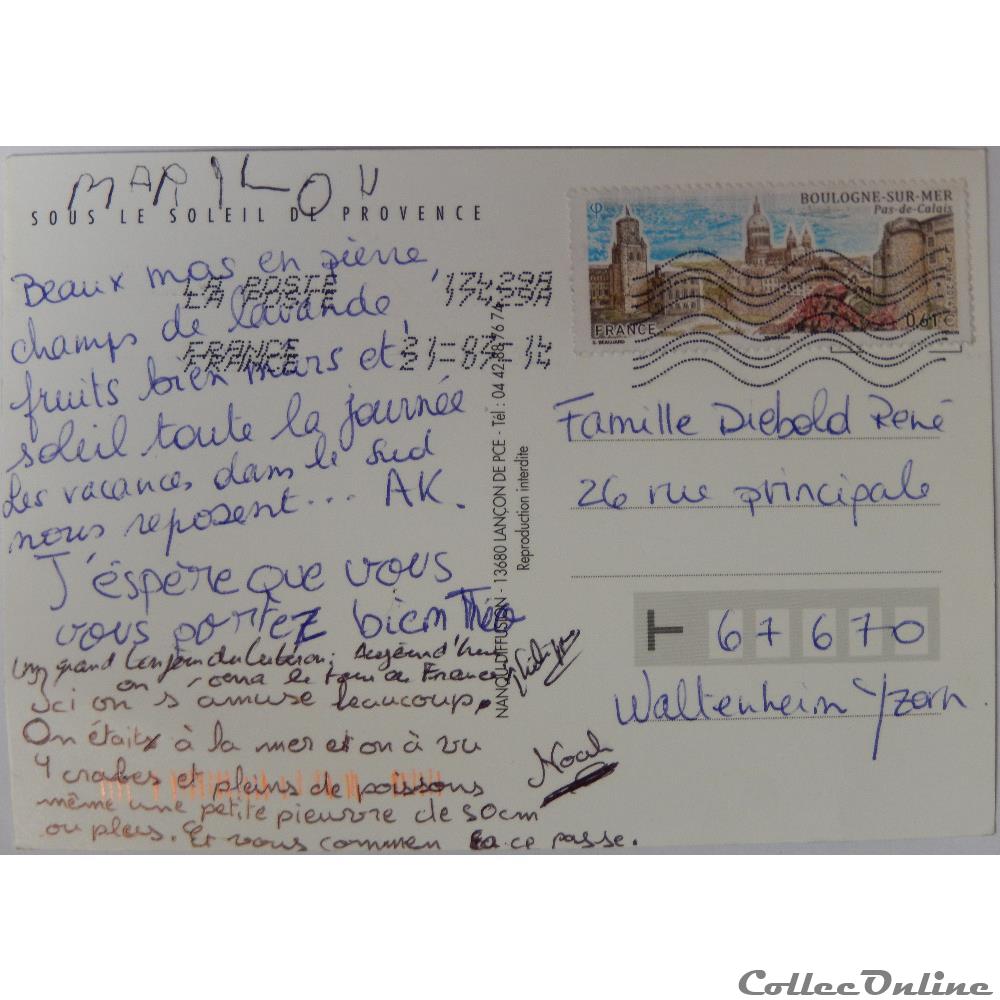 MARYLOU
SOUS LE SOLEIL DE PROVENCE
Beaux mas en pierre,
champs de lavande,
fruits bien mûrs et
soleil toute la journée
Les vacances dans le sud
nous reposent... AK.
J'éspère que vous
vous portez bien Théo
Un grand du Luberon; Aujourd'hui
on le tour de France
Ici on s'amuse beaucoup.
On étaits à la mer et on à vu
4 crabes et pleins de poissons
même une petite pieuvre de 50cm
ou plus. Et vous commen ça ce passe.
Noah
LA POSTE 17429A
FRANCE
NANQUI DIFFUSION - 13680 LANÇON DE PCE - Tél : 04 42 88 76 74
Reproduction interdite
BOULOGNE-SUR-MER
Pas-de-Calais
FRANCE
0,61 €
Famille Diebold René
26 rue principale
67670
Waltenheim s/Zorn
CollecOnline